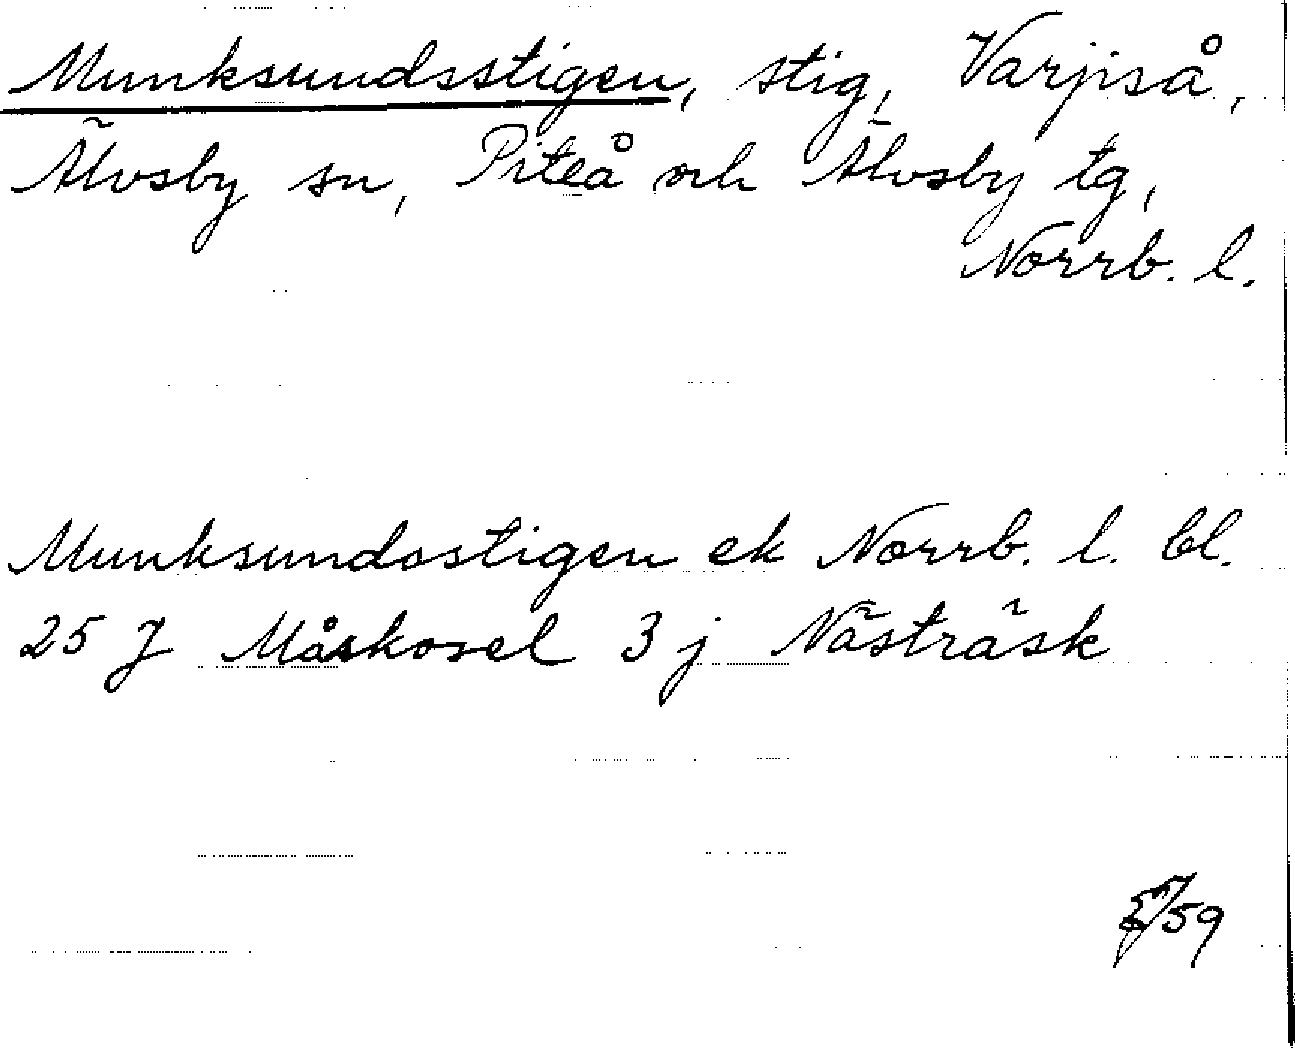 Munksundsstigen, stig, Varjiså,
Älvsby sn, Piteå och Älvsby tg,
Norrb. l.
Munksundsstigen ek Norrb. l. bl.
25 J Måskosel 3 j Nästräsk
/59